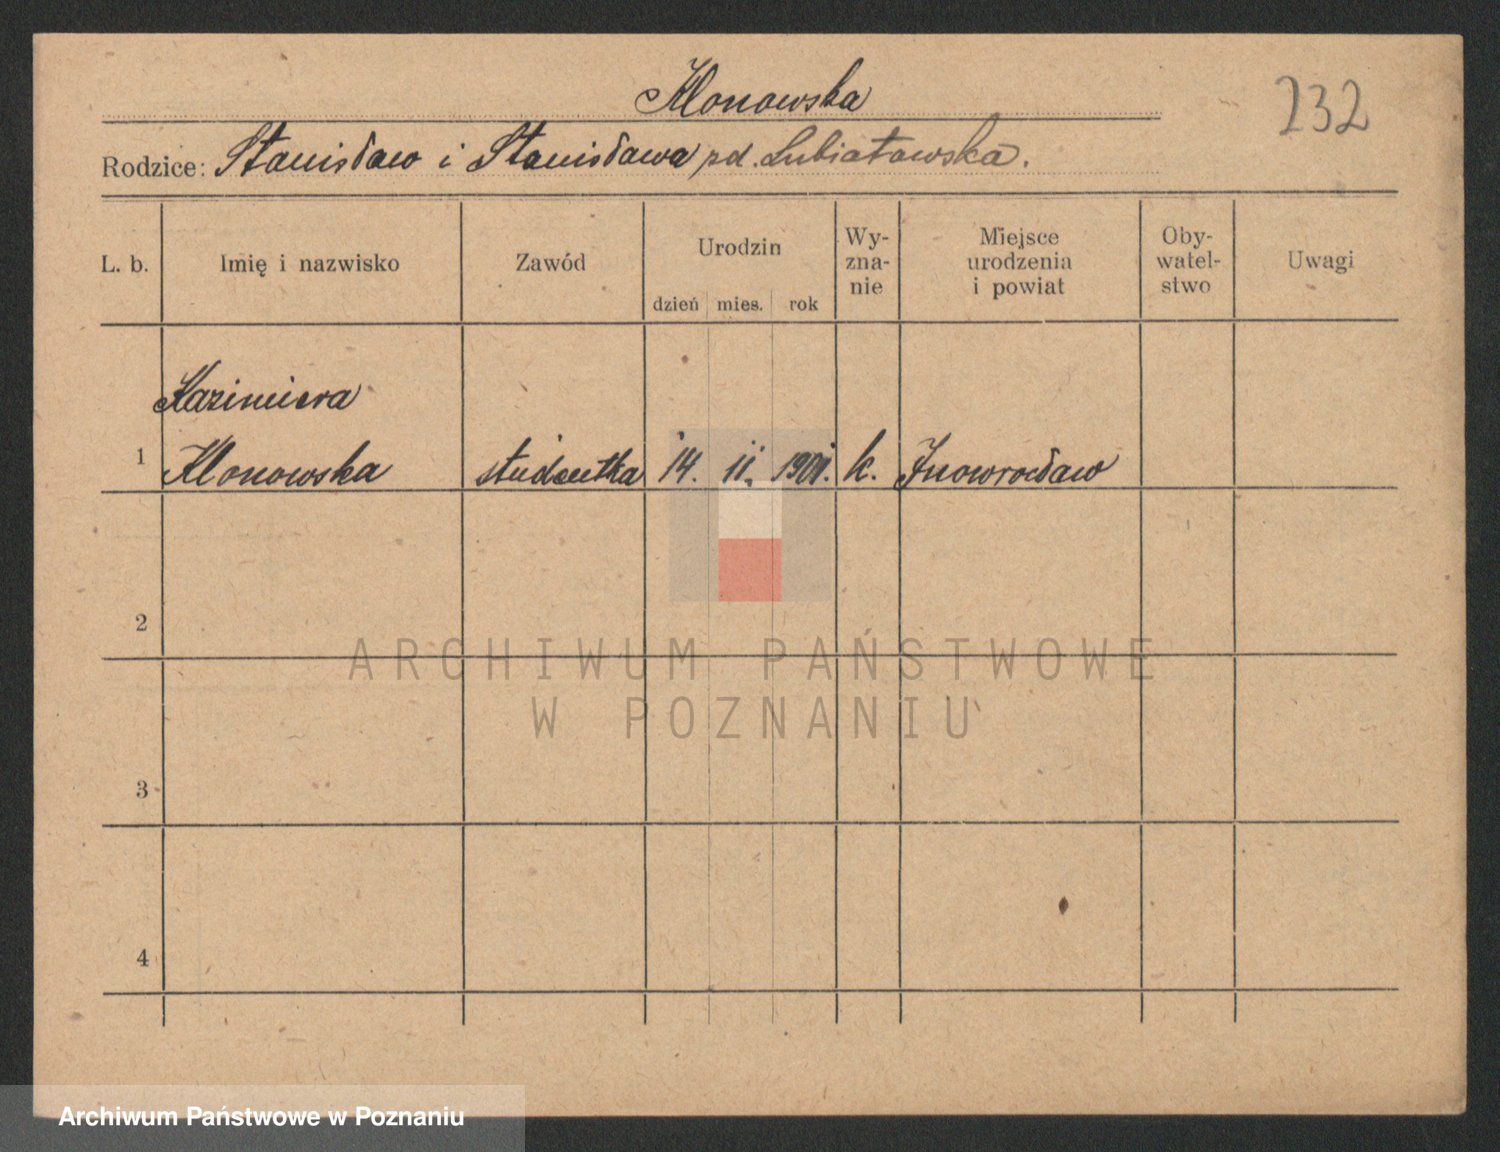 Klonowska
232
Rodzice: Stanisław i Stanisława zd. Lubiatowska.
L. b. Imię i nazwisko Zawód Urodzin dzień mies. rok Wy-znanie Miejsce urodzenia i powiat Oby-watel-stwo Uwagi
Kazimiera
1 Klonowska studentka 14. 11. 1901. k. Inowrocław
2
ARCHIWUM PAŃSTWOWE
W POZNANIU
3
4
Archiwum Państwowe w Poznaniu